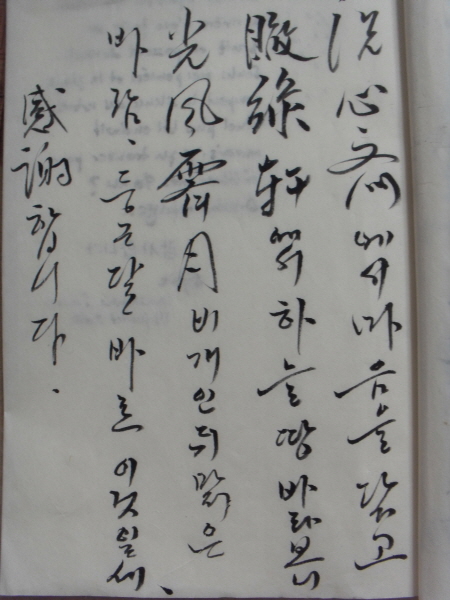 洗心齋에서 마음을 닦고
綠軒에서 하늘 땅 바라보니
光風霽月 비 개인 뒤 맑은
바람、둥근달 바로 이것일세、
感謝합니다.